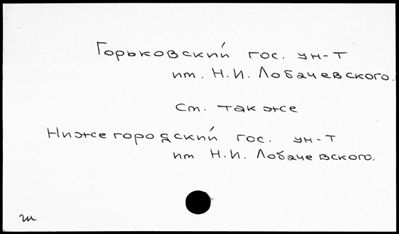 Горьковский гос. ун-т
им. Н.И. Лобачевского.
См. также
Нижегородский гос. ун-т
им Н.И. Лобачевского.